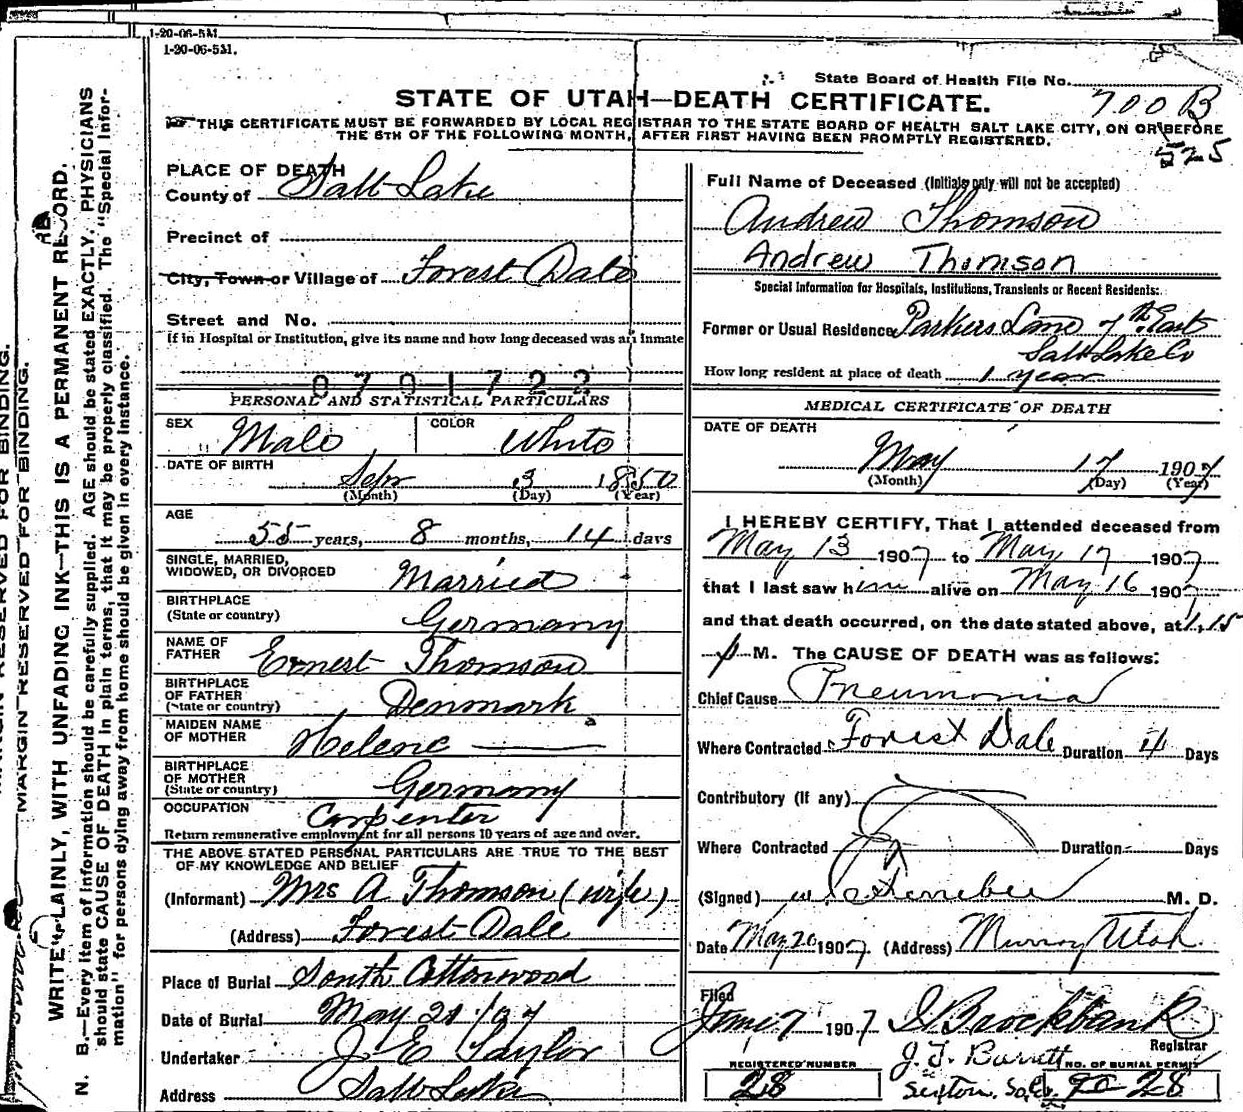 1-20-06-5M.
1-20-06-5M.
State Board of Health File No.
700 B
STATE OF UTAH—DEATH CERTIFICATE.
THIS CERTIFICATE MUST BE FORWARDED BY LOCAL REGISTRAR TO THE STATE BOARD OF HEALTH SALT LAKE CITY, ON OR BEFORE
THE 5TH OF THE FOLLOWING MONTH, AFTER FIRST HAVING BEEN PROMPTLY REGISTERED.
525
MARGIN RESERVED FOR BINDING.
MARGIN RESERVED FOR BINDING.
WRITE PLAINLY, WITH UNFADING INK—THIS IS A PERMANENT RECORD.
N. B.—Every item of information should be carefully supplied. AGE should be stated EXACTLY. PHYSICIANS
should state CAUSE OF DEATH in plain terms, that it may be properly classified. The "Special Infor-
mation" for persons dying away from home should be given in every instance.
PLACE OF DEATH
County of Salt Lake
Precinct of
City, Town or Village of Forest Dale
Street and No.
If in Hospital or Institution, give its name and how long deceased was an inmate
0701722
PERSONAL AND STATISTICAL PARTICULARS
SEX Male COLOR White
DATE OF BIRTH Sep 3 1850
(Month) (Day) (Year)
AGE
55 years, 8 months, 14 days
SINGLE, MARRIED,
WIDOWED, OR DIVORCED Married
BIRTHPLACE
(State or country) Germany
NAME OF
FATHER Ernest Thomson
BIRTHPLACE
OF FATHER
(State or country) Denmark
MAIDEN NAME
OF MOTHER Helene
BIRTHPLACE
OF MOTHER
(State or country) Germany
OCCUPATION Carpenter
Return remunerative employment for all persons 10 years of age and over.
THE ABOVE STATED PERSONAL PARTICULARS ARE TRUE TO THE BEST
OF MY KNOWLEDGE AND BELIEF
(Informant) Mrs A Thomson (wife)
(Address) Forest Dale
Place of Burial South Cottonwood
Date of Burial May 21/07
Undertaker J E Taylor
Address Salt Lake
Full Name of Deceased (Initials only will not be accepted)
Andrew Thomson
Andrew Thomson
Special Information for Hospitals, Institutions, Transients or Recent Residents:
Former or Usual Residence Parkers Lane 7th East
Salt Lake Co
How long resident at place of death 1 year
MEDICAL CERTIFICATE OF DEATH
DATE OF DEATH
May 17 1907
(Month) (Day) (Year)
I HEREBY CERTIFY, That I attended deceased from
May 13 1907 to May 17 1907
that I last saw him alive on May 16 1907
and that death occurred, on the date stated above, at 1.15
M. The CAUSE OF DEATH was as follows:
Chief Cause Pneumonia
Where Contracted Forest Dale Duration 4 Days
Contributory (if any)
Where Contracted Duration Days
(Signed) M. D.
Date May 20 1907 (Address) Murray Utah
Filed
June 7 1907 Brockbank
Registrar
REGISTERED NUMBER
28
J. T. Barrett
Sexton
NO. OF BURIAL PERMIT
28